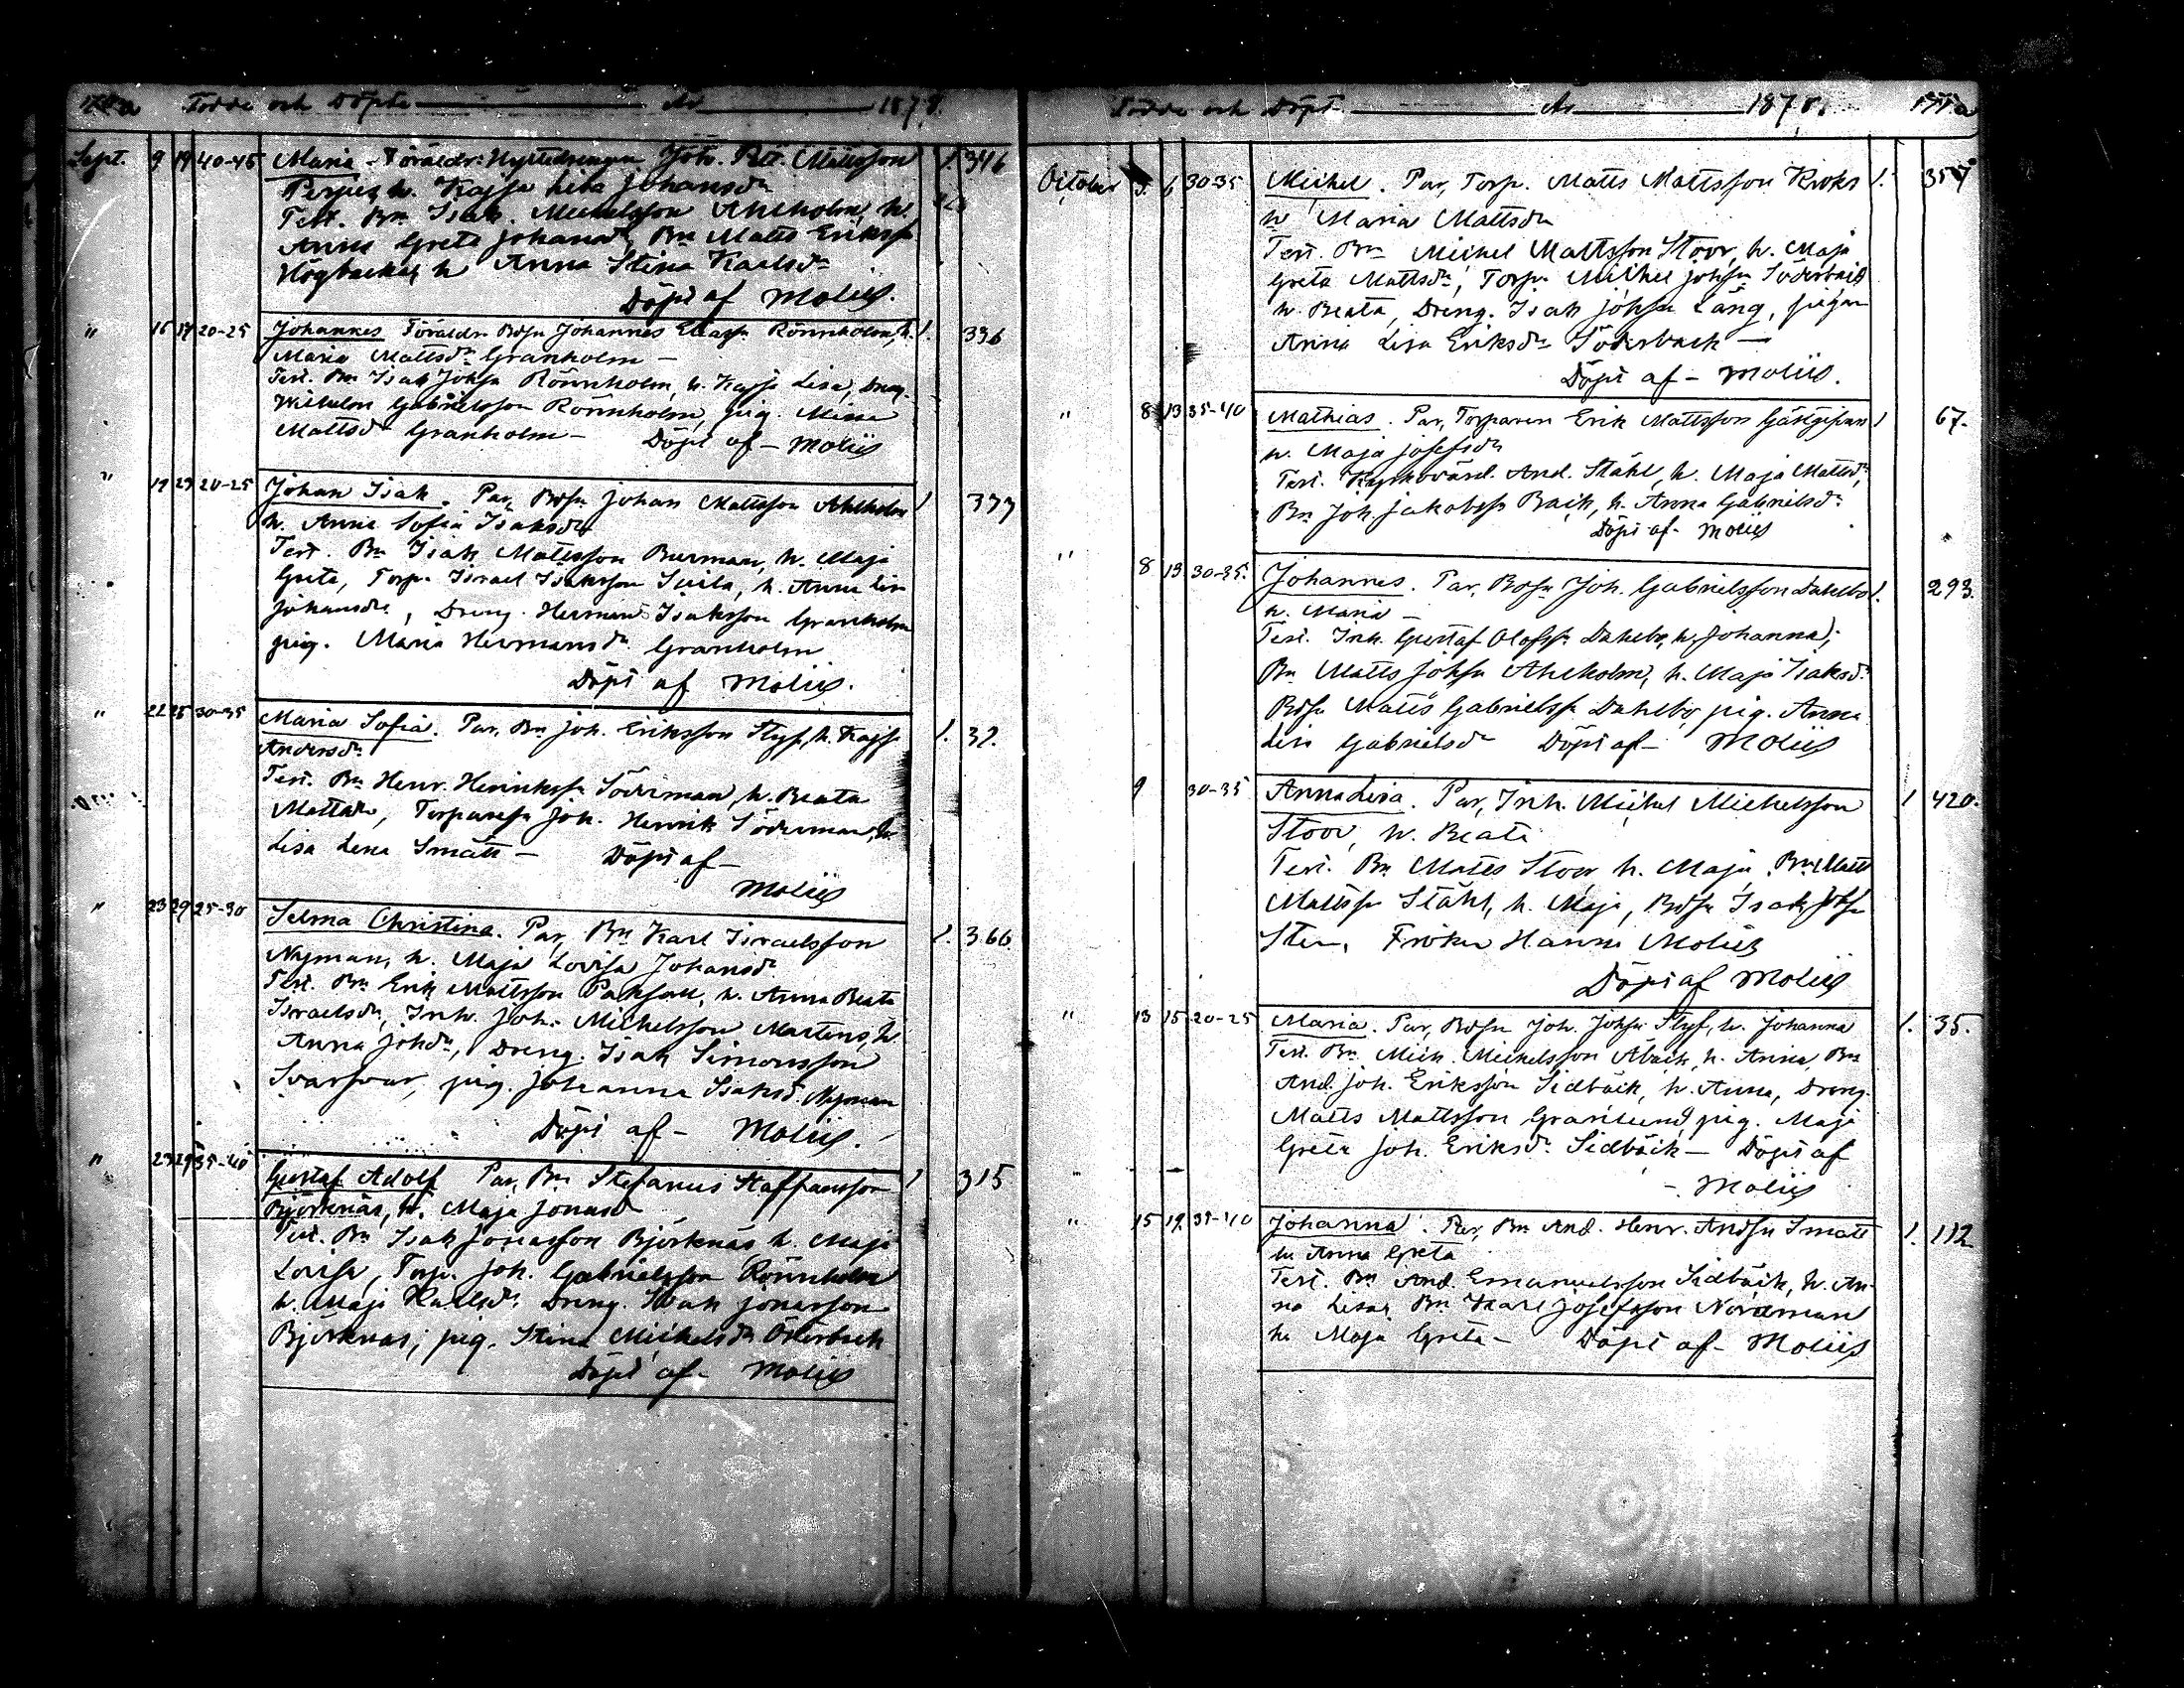 Födde och Döpte År 1878.
Sept. 9 19 40-45 Maria - Föräldr: Hyttedrengen Joh. Petr. Mattsson 1. 346
h. Kajsa Lisa Johansdr
Test. Bn Isak Michelsson Ahlholm, h.
Anna Greta Johansdr, Bn Matts Eriksson
Högbacka, h Anna Stina Karlsdr
Döpt af Moliis.
" 16 19 20-25 Johannes Föräldr Bdsn Johannes Eliassn Rönnholm, h. 1. 336
Maria Mattsdr Granholm -
Test. Bn Isak Johsn Rönnholm, h. Kajsa Lisa, Dreng.
Wilhelm Gabrielsson Rönnholm, pig. Minna
Mattsdr Granholm - Döpt af - Moliis
" 19 23 20-25 Johan Isak. Par, Bdsn Johan Mattsson Ahlholm 1 337
h. Anna Sofia Isaksdr
Test. Bn Isak Mattsson Burman, h. Maja
Greta, Torp. Israel Isaksson Svila, h. Anna Lisa
Johansdr, Dreng. Herman Isaksson Granholm
pig. Maria Hermansdr Granholm
Döpt af Moliis.
" 22 25 30-35 Maria Sofia. Par, Bn Joh. Eriksson Slyf, h. Kajsa 1. 32.
Andersdr
Test. Bn Henr. Henrikssn Söderman, h. Beata
Mattsdr, Torparesn Joh. Henrik Söderman, h.
Lisa Lena Smått - Döpt af -
Moliis
" 23 29 25-30 Selma Christina. Par, Bn Karl Israelsson 1. 366
Nyman, h. Maja Lovisa Johansdr
Test. Bn Erik Mattsson, h. Anna Beata
Israelsdr, Inh. Joh. Michelsson Martens, h.
Anna Johdr, Dreng. Isak Simonsson
Svarfvar, pig. Johanna Isaksd. Nyman
Döpt af - Moliis.
" 23 29 35-40 Gustaf Adolf Par, Bn Stefanus Staffansson 1 315
Björknäs, h. Maja Jonasdr
Test. Bn Isak Jonasson Björknäs, h. Maja
Lovisa, Torp. Joh. Gabrielsson Rönnholm
h. Maja Karlsdr Dreng. Isak Jonasson
Björknäs, pig. Stina Michelsdr Österback
Döpt af - Moliis
Födde och Döpt År 1878.
October 5 6 30-35 Michel. Par, Torp. Matts Mattsson Kroks 1. 357
h Maria Mattsdr
Test. Bn Michel Mattsson Stoor, h. Maja
Greta Mattsdr, Torp. Michel Johsn Söderback
h. Beata, Dreng. Isak Johsn Lång, pigan
Anna Lisa Eriksdr Söderback -
Döpt af - Moliis.
" 8 13 35-40 Mathias. Par, Torparen Erik Mattsson Gästgifvars 1 67.
h. Maja Josefsdr
Test. Kyrkovärd. And. Ståhl, h. Maja Mattsdr,
Bn Joh. Jakobssn Back, h. Anna Gabrielsdr
Döpt af - Moliis
" 8 13 30-35. Johannes. Par, Bdsn Joh. Gabrielsson Dahlbo 1. 293.
h. Maria -
Test. Inh. Gustaf Olofssn Dahlbo, h. Johanna,
Bn Matts Johsn Ahlholm, h. Maja Isaksdr
Bdsn Matts Gabrielssn Dahlbo, pig. Anna
Lisa Gabrielsdr Döpt af - Moliis
9 30-35 Anna Lisa. Par, Inh. Michel Michelsson 1 420.
Stoor, h. Beata
Test. Bn Matts Stoor h. Maja, Bn Matts
Mattssn Ståhl, h. Maja, Bdsn Isak Johsn
Sten, Fröken Hanna Moliis
Döpt af Moliis
" 13 15 20-25 Maria. Par, Bdsn Joh. Johsn Slyf, h. Johanna 1. 35.
Test. Bn Mich. Michelsson Åback, h. Anna, Bn
And. Joh. Eriksson Sidbäck, h. Anna, Dreng.
Matts Mattsson Granlund, pig. Maja
Greta Joh. Eriksdr Sidbäck - Döpt af
- Moliis
" 15 19 35-40 Johanna. Par, Bn And. Henr. Andsn Smått 1. 112
h. Anna Greta
Test. Bn And. Emanuelsson Sidbäck, h. An-
na Lisa, Bn Karl Josefsson Nordman
h. Maja Greta - Döpt af - Moliis